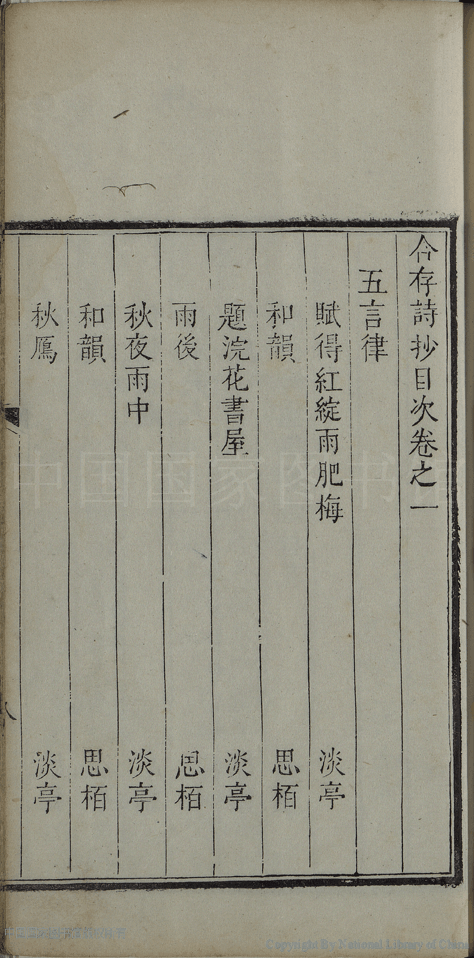 合存詩抄目次卷之一
五言律
賦得紅綻雨肥梅 淡亭
和韻 思栢
題浣花書屋 淡亭
雨後 思栢
秋夜雨中 淡亭
和韻 思栢
秋鴈 淡亭
中国国家图书馆
Copyright By National Library of China